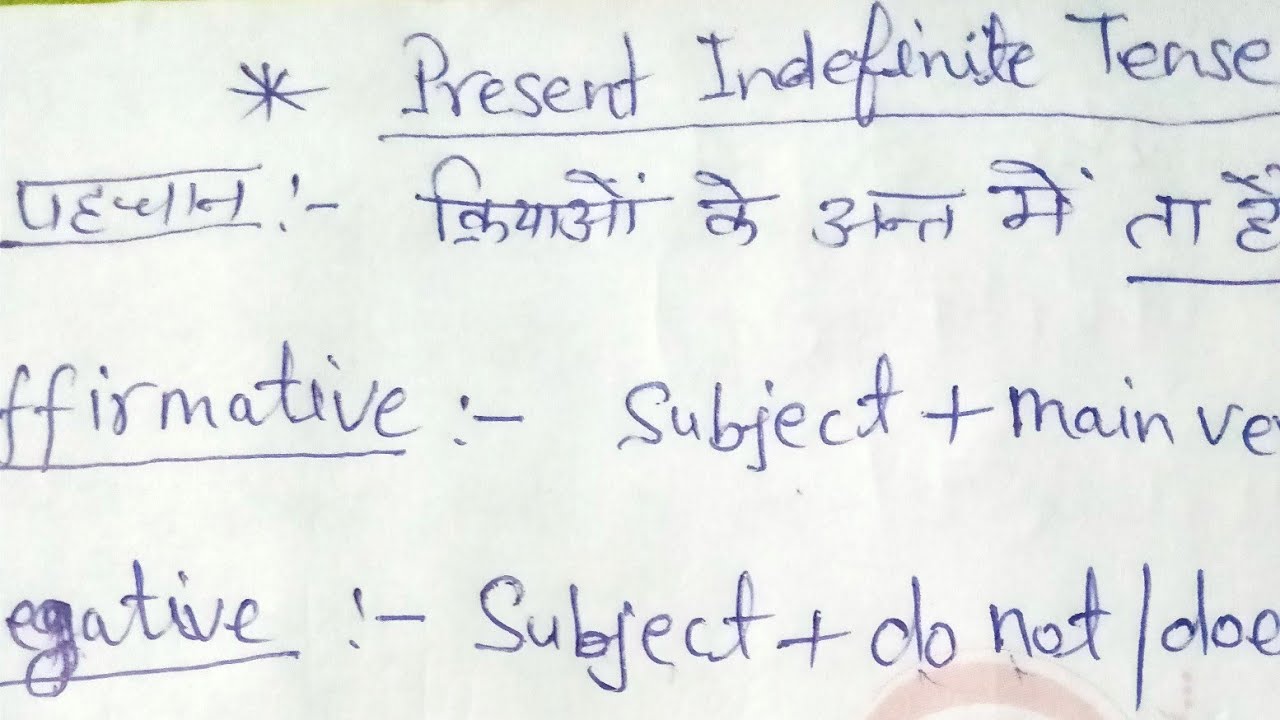 * Present Indefinite Tense
पहचान :- क्रियाओं के अन्त में ता है
ffirmative :- Subject + main ve
egative :- Subject + do not / doe